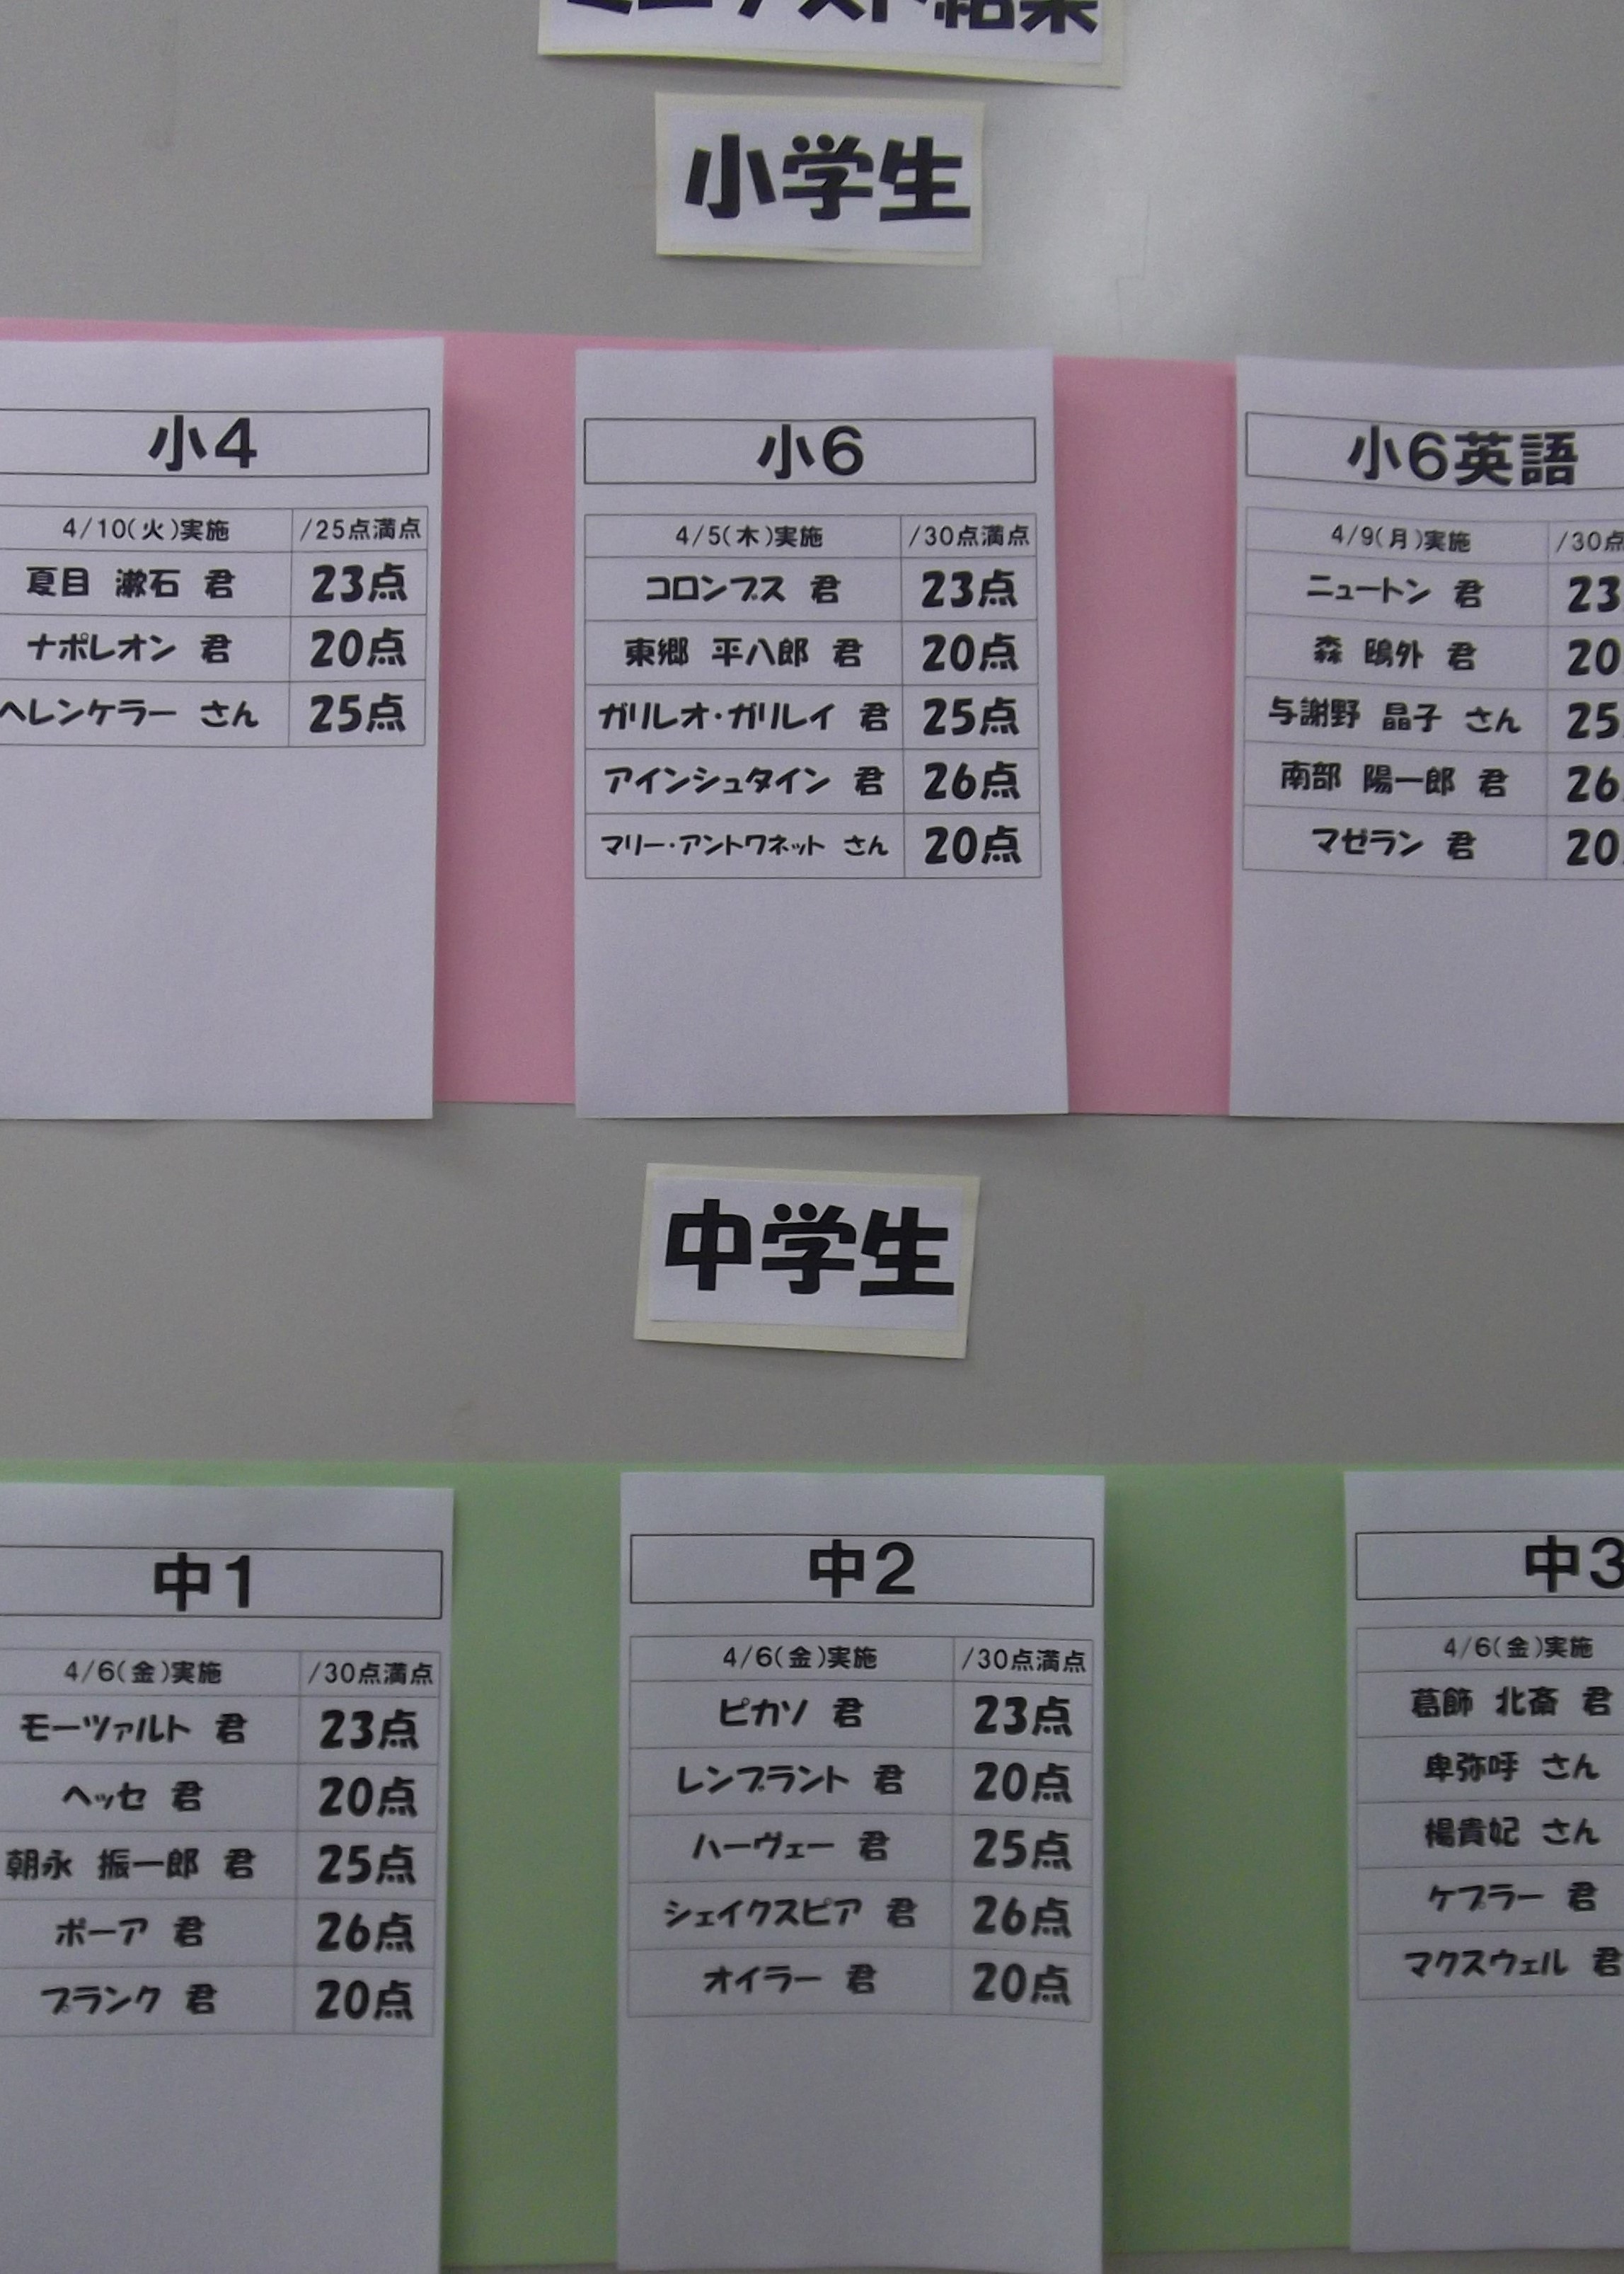 ミニテスト結果
小学生
小4
4/10(火)実施 /25点満点
夏目 漱石 君 23点
ナポレオン 君 20点
ヘレンケラー さん 25点
小6
4/5(木)実施 /30点満点
コロンブス 君 23点
東郷 平八郎 君 20点
ガリレオ・ガリレイ 君 25点
アインシュタイン 君 26点
マリー・アントワネット さん 20点
小6英語
4/9(月)実施 /30点
ニュートン 君 23
森 鴎外 君 20
与謝野 晶子 さん 25
南部 陽一郎 君 26
マゼラン 君 20
中学生
中1
4/6(金)実施 /30点満点
モーツァルト 君 23点
ヘッセ 君 20点
朝永 振一郎 君 25点
ボーア 君 26点
プランク 君 20点
中2
4/6(金)実施 /30点満点
ピカソ 君 23点
レンブラント 君 20点
ハーヴェー 君 25点
シェイクスピア 君 26点
オイラー 君 20点
中3
4/6(金)実施
葛飾 北斎 君
卑弥呼 さん
楊貴妃 さん
ケプラー 君
マクスウェル 君